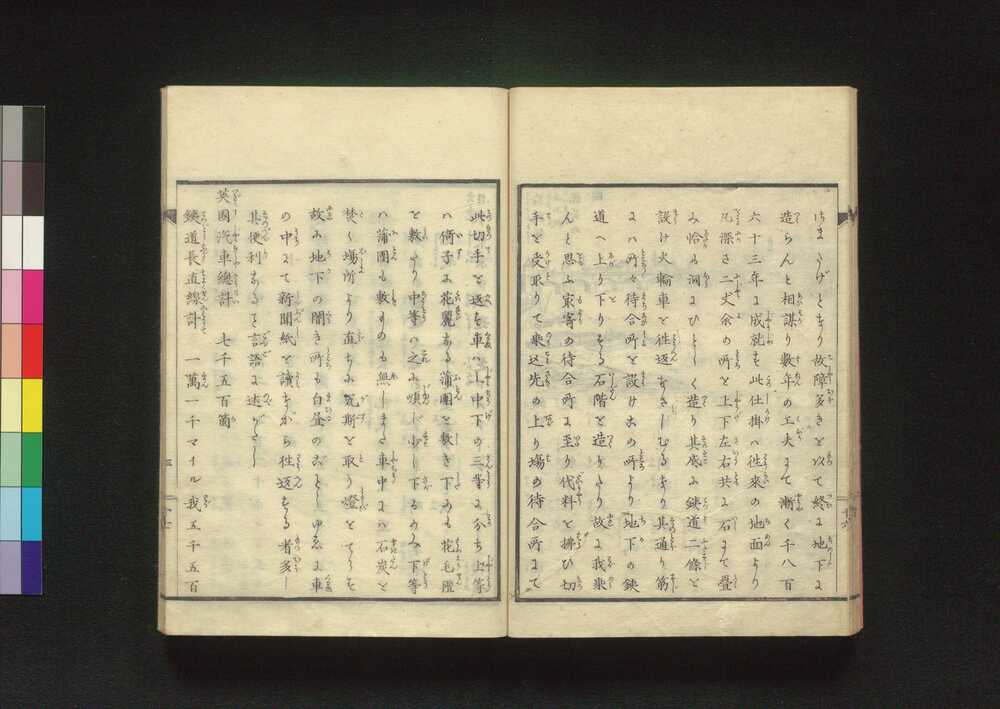 はまたげとなり故障多きを以て終に地下に
造らんと相謀り数年の工夫にて漸く千八百
六十三年に成就す此仕掛ハ徃來の地面より
凡深さ二丈余の所を上下左右共に石にて疊
み恰も洞のひとしく造り其底に鉄道二條を
設け火輪車を徃返なさしむるなり其通り筋
にハ所々待合所を設け出の所より地下の鉄
道へ上り下りする石階を造りたり故に我乘
んと思ふ最寄の待合所に至り代料を拂ひ切
手を受取りて乘込先の上り塲の待合所にて
此切手を返す車ハ上中下の三等に分ち上等
ハ倚子に花麗なる蒲團を敷き下にも花毛氊
を敷たり中等ハ之に順じ少し下るのみ下等
ハ蒲團も敷ものも無しまた車中にハ石炭を
焚く塲所より直ちに瓦斯を取り燈をてらす
故に地下の闇き所も白昼のごとしゆゑに車
の中にて新聞紙を讀ながら徃返する者多し
其便利なるを言語に述がたし
英國汽車總計 七千五百箇
鉄道長直線計 一萬一千マイル 我五千五百
十六
十七